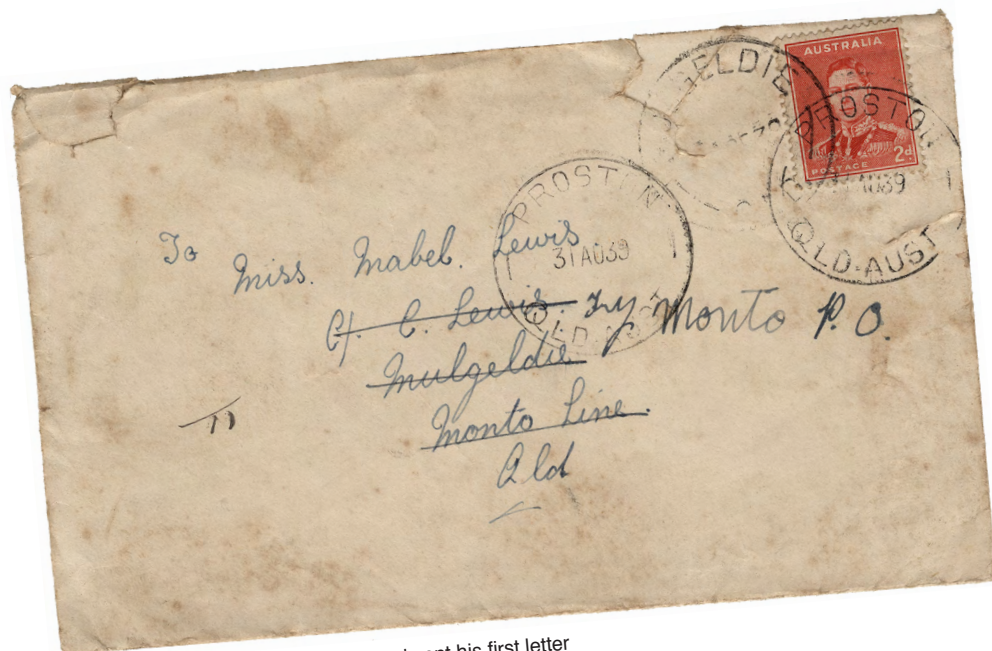 GELDIE
AUSTRALIA
POSTAGE 2d
PROSTON
31AU39
QLD-AUST
PROSTON
AU39
QLD-AUST
To
Miss. Mabel. Lewis
C/. C. Lewis. Monto P.O.
Mulgeldie
Monto Line.
Qld
his first letter